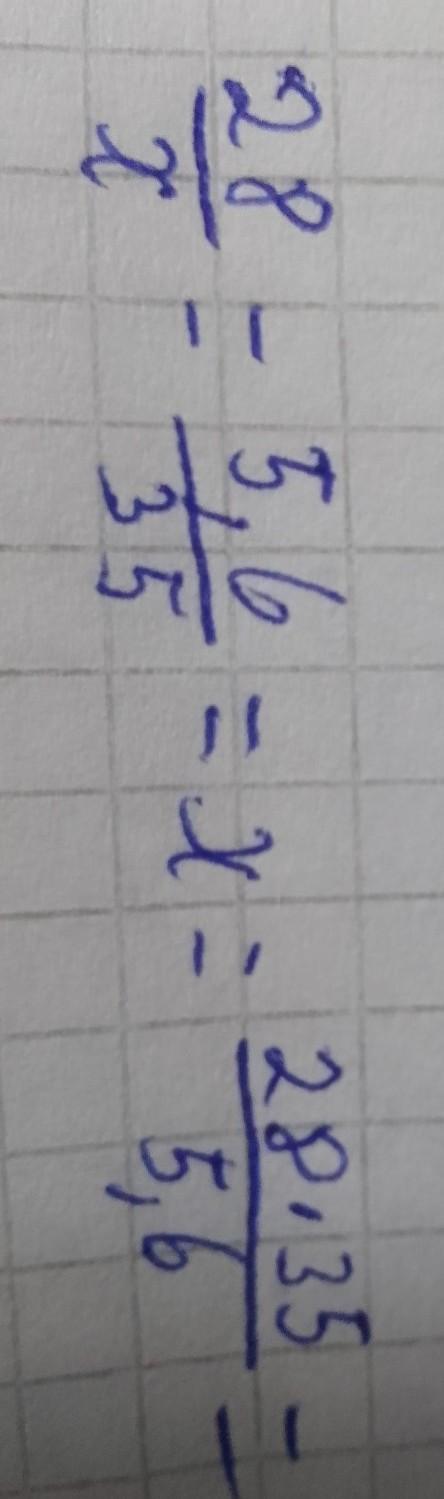 28/x = 5,6/35 = x = 28·35/5,6 =